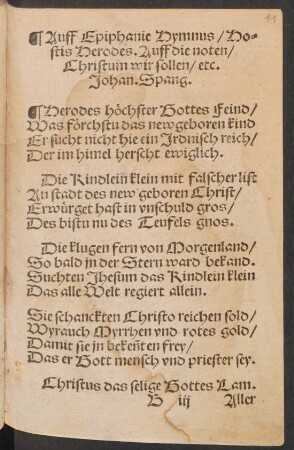 11
¶ Auff Epiphanie Hymnus / Ho-
stis Herodes. Auff die noten /
Christum wir sollen / etc.
Johan. Spang.
¶ Herodes höchster Gottes Feind /
Was förchstu das new geboren kind
Er sucht nicht hie ein Irdnisch reich /
Der im himel herscht ewiglich.
Die Kindlein klein mit falscher list
An stadt des new geboren Christ /
Erwürget hast in vnschuld gros /
Des bistu nu des Teufels gnos.
Die klugen fern von Morgenland /
So bald in der Stern ward bekand.
Suchten Jhesum das Kindlein klein
Das alle Welt regiert allein.
Sie schanckten Christo reichen sold /
Wyrauch Myrrhen vnd rotes gold /
Damit sie in bekeñt en frey /
Das er Gott mensch vnd priester sey.
Christus das selige Gottes Lam.
B iij Aller